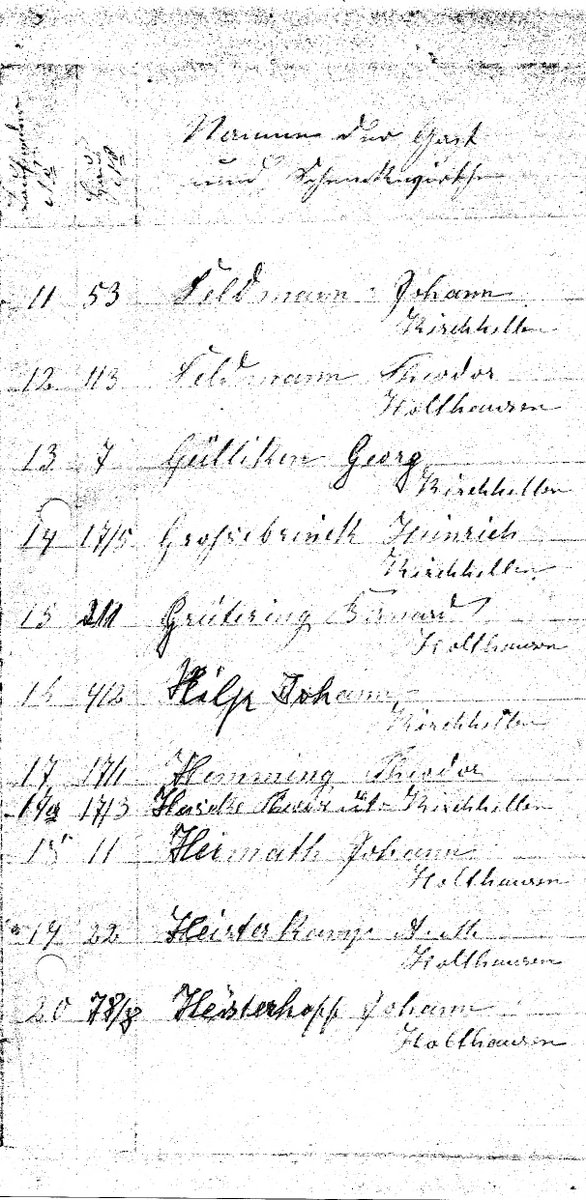 Laufende No
Haus No
Namen der Gast
und Schenkwirthe
11 53 Feldmann Johann
Kirchhellen
12 113 Feldmann Theodor
Holthausen
13 7 Gülliken Georg
Kirchhellen
14 17/5 Grossebrinck Heinrich
Kirchhellen
15 211 Grütering Bernard
Holthausen
16 4/2 Hilp Johann
Kirchhellen
17 17/1 Hemming Theodor
17a 17/3 Kirchhellen
18 11 Heimath Johann
Holthausen
19 22 Heisterkamp
Holthausen
20 78/8 Heisterhoff Johann
Holthausen